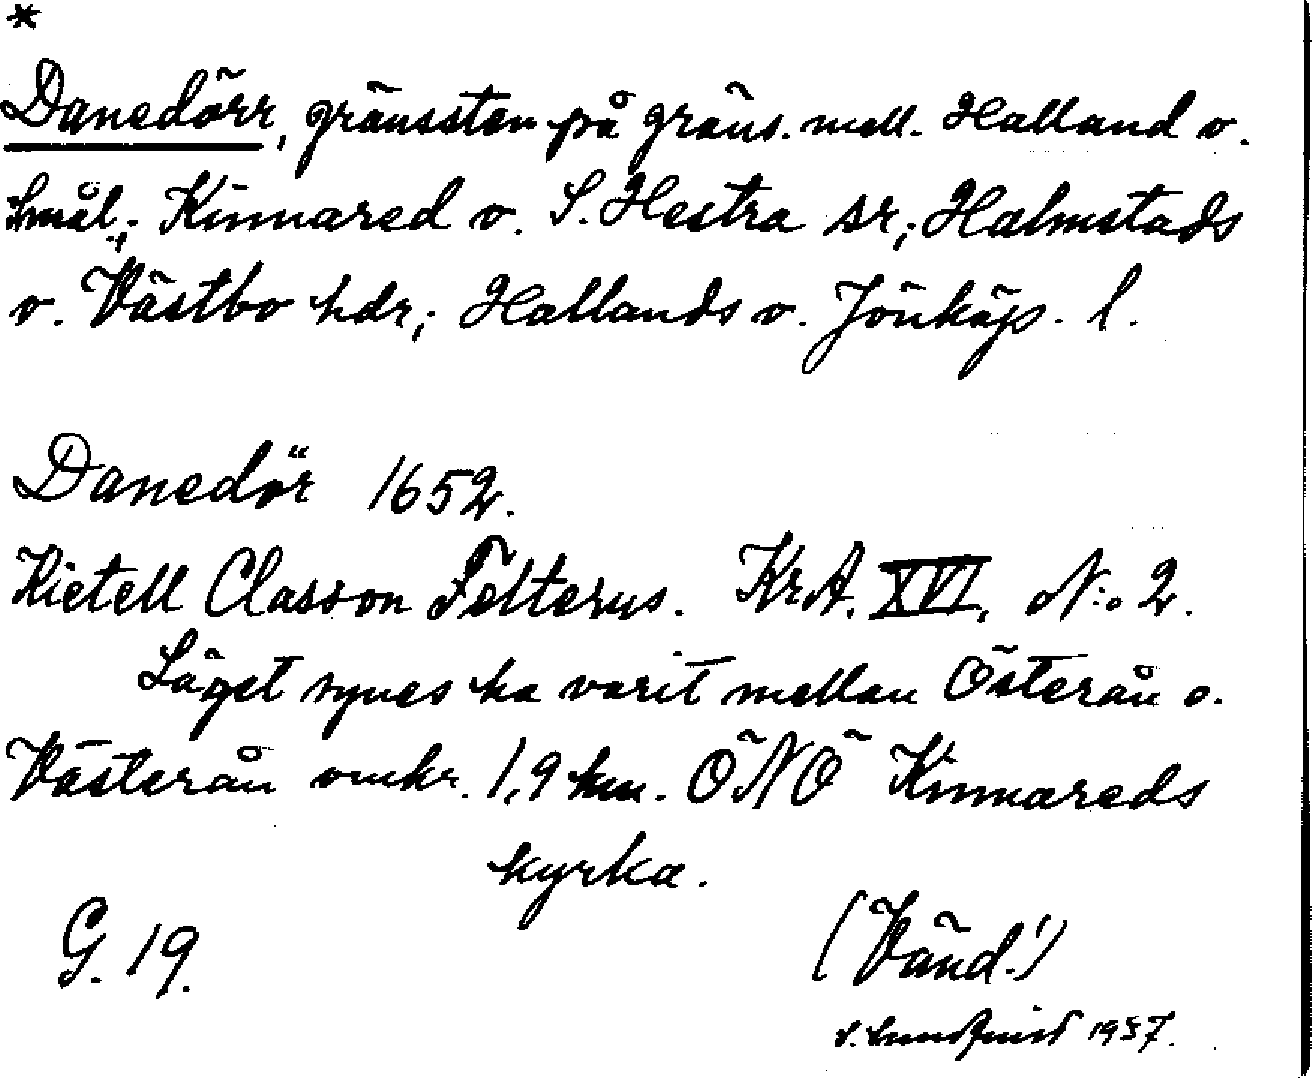 *
Danedörr, gränssten på gräns. mell. Halland o.
Smål.; Kinnared o. S. Hestra sr; Halmstads
o. Västbo hdr; Hallands o. Jönköp. l.
Danedör 1652.
Kietell Classon Felterus. KrA. XVI, N:o 2.
Läget synes ha varit mellan Österån o.
Västerån omkr. 1,9 km. ÖNÖ Kinnareds
kyrka.
G. 19.
(Vänd!)
Lundquist 1937.